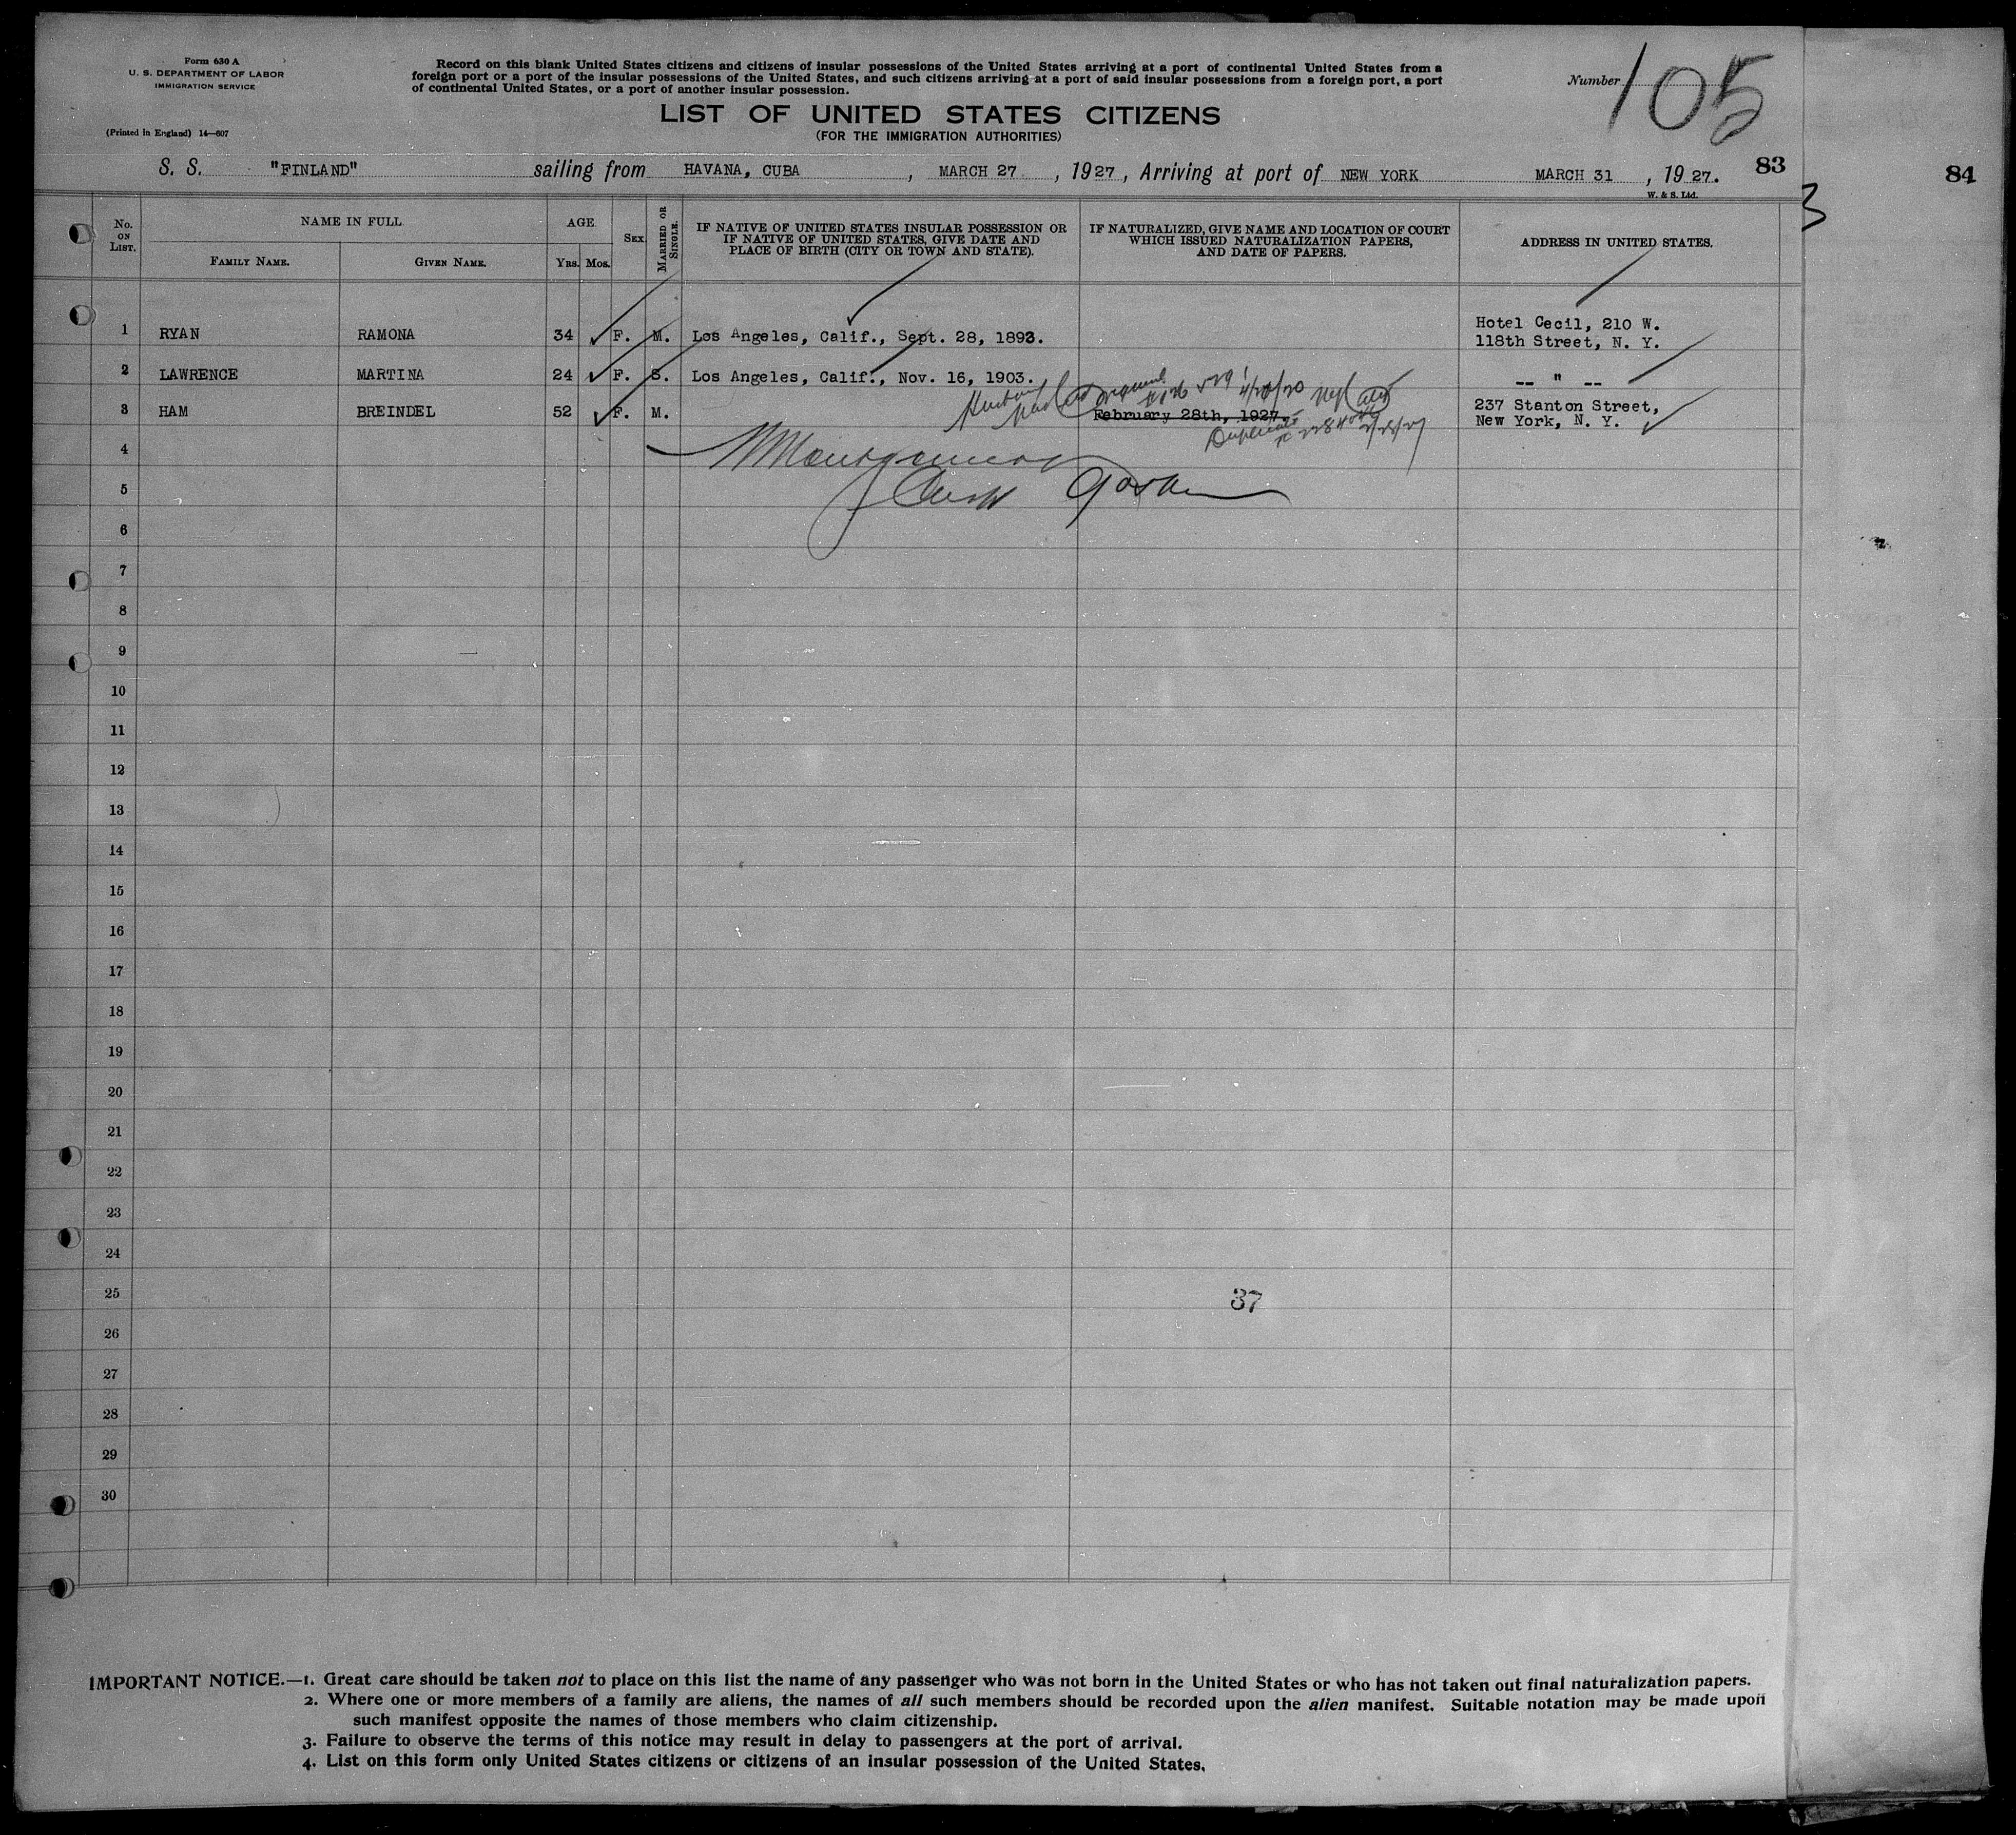 Form 630 A
U. S. DEPARTMENT OF LABOR
IMMIGRATION SERVICE
(Printed in England) 14—607
Record on this blank United States citizens and citizens of insular possessions of the United States arriving at a port of continental United States from a
foreign port or a port of the insular possessions of the United States, and such citizens arriving at a port of said insular possessions from a foreign port, a port
of continental United States, or a port of another insular possession.
Number 105
LIST OF UNITED STATES CITIZENS
(FOR THE IMMIGRATION AUTHORITIES)
83
84
S. S. "FINLAND" sailing from HAVANA, CUBA, MARCH 27, 1927, Arriving at port of NEW YORK MARCH 31, 1927.
W. & S. Ltd.
3
No. ON LIST.
NAME IN FULL
FAMILY NAME.
GIVEN NAME.
AGE
YRS.
MOS.
SEX
MARRIED OR SINGLE.
IF NATIVE OF UNITED STATES INSULAR POSSESSION OR
IF NATIVE OF UNITED STATES, GIVE DATE AND
PLACE OF BIRTH (CITY OR TOWN AND STATE).
IF NATURALIZED, GIVE NAME AND LOCATION OF COURT
WHICH ISSUED NATURALIZATION PAPERS,
AND DATE OF PAPERS.
ADDRESS IN UNITED STATES.
1 RYAN RAMONA 34 F. M. Los Angeles, Calif., Sept. 28, 1893. Hotel Cecil, 210 W.
118th Street, N. Y.
2 LAWRENCE MARTINA 24 F. S. Los Angeles, Calif., Nov. 16, 1903. -- " --
3 HAM BREINDEL 52 F. M. February 28th, 1927. 237 Stanton Street,
New York, N. Y.
Duplicate
4
Montgomery
5
6
7
8
9
10
11
12
13
14
15
16
17
18
19
20
21
22
23
24
25
37
26
27
28
29
30
IMPORTANT NOTICE.—1. Great care should be taken not to place on this list the name of any passenger who was not born in the United States or who has not taken out final naturalization papers.
2. Where one or more members of a family are aliens, the names of all such members should be recorded upon the alien manifest. Suitable notation may be made upon
such manifest opposite the names of those members who claim citizenship.
3. Failure to observe the terms of this notice may result in delay to passengers at the port of arrival.
4. List on this form only United States citizens or citizens of an insular possession of the United States.